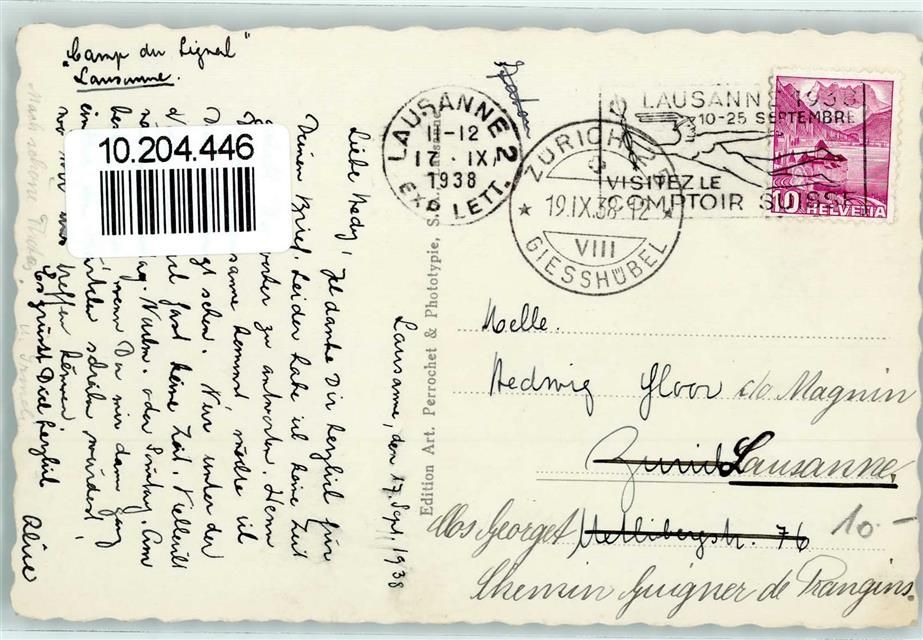 "Camp du Signal"
Lausanne.
10.204.446
Lausanne, den 17. Sept. 1938
Liebe Hedy! Ich danke Dir herzlich für
Deinen Brief. Leider hatte ich keine Zeit
vorher zu antworten. Wenn
Lausanne kommst, möchte ich
sehen. Nur unter der
fast keine Zeit. Vielleicht
Nachm. oder Sonntag. Am
wenn Du mir dann ganz
schreiben würdest,
wo wir uns treffen können.
Es grüsst Dich herzlich
Alice
Edition Art. Perrochet & Phototypie, S.A., Lausanne
LAUSANNE 2
11-12
17.IX.
1938
EXP. LETT.
LAUSANNE 1938
10-25 SEPTEMBRE
VISITEZ LE
COMPTOIR SUISSE
ZÜRICH 2
19.IX.38-12
VIII
GIESSHÜBEL
10 HELVETIA
Melle.
Hedwig Gloor c/o Magnin
Zürich Lausanne.
Mos Georget Uetlibergstr. 76
Chemin Guiguer de Prangins.
10-